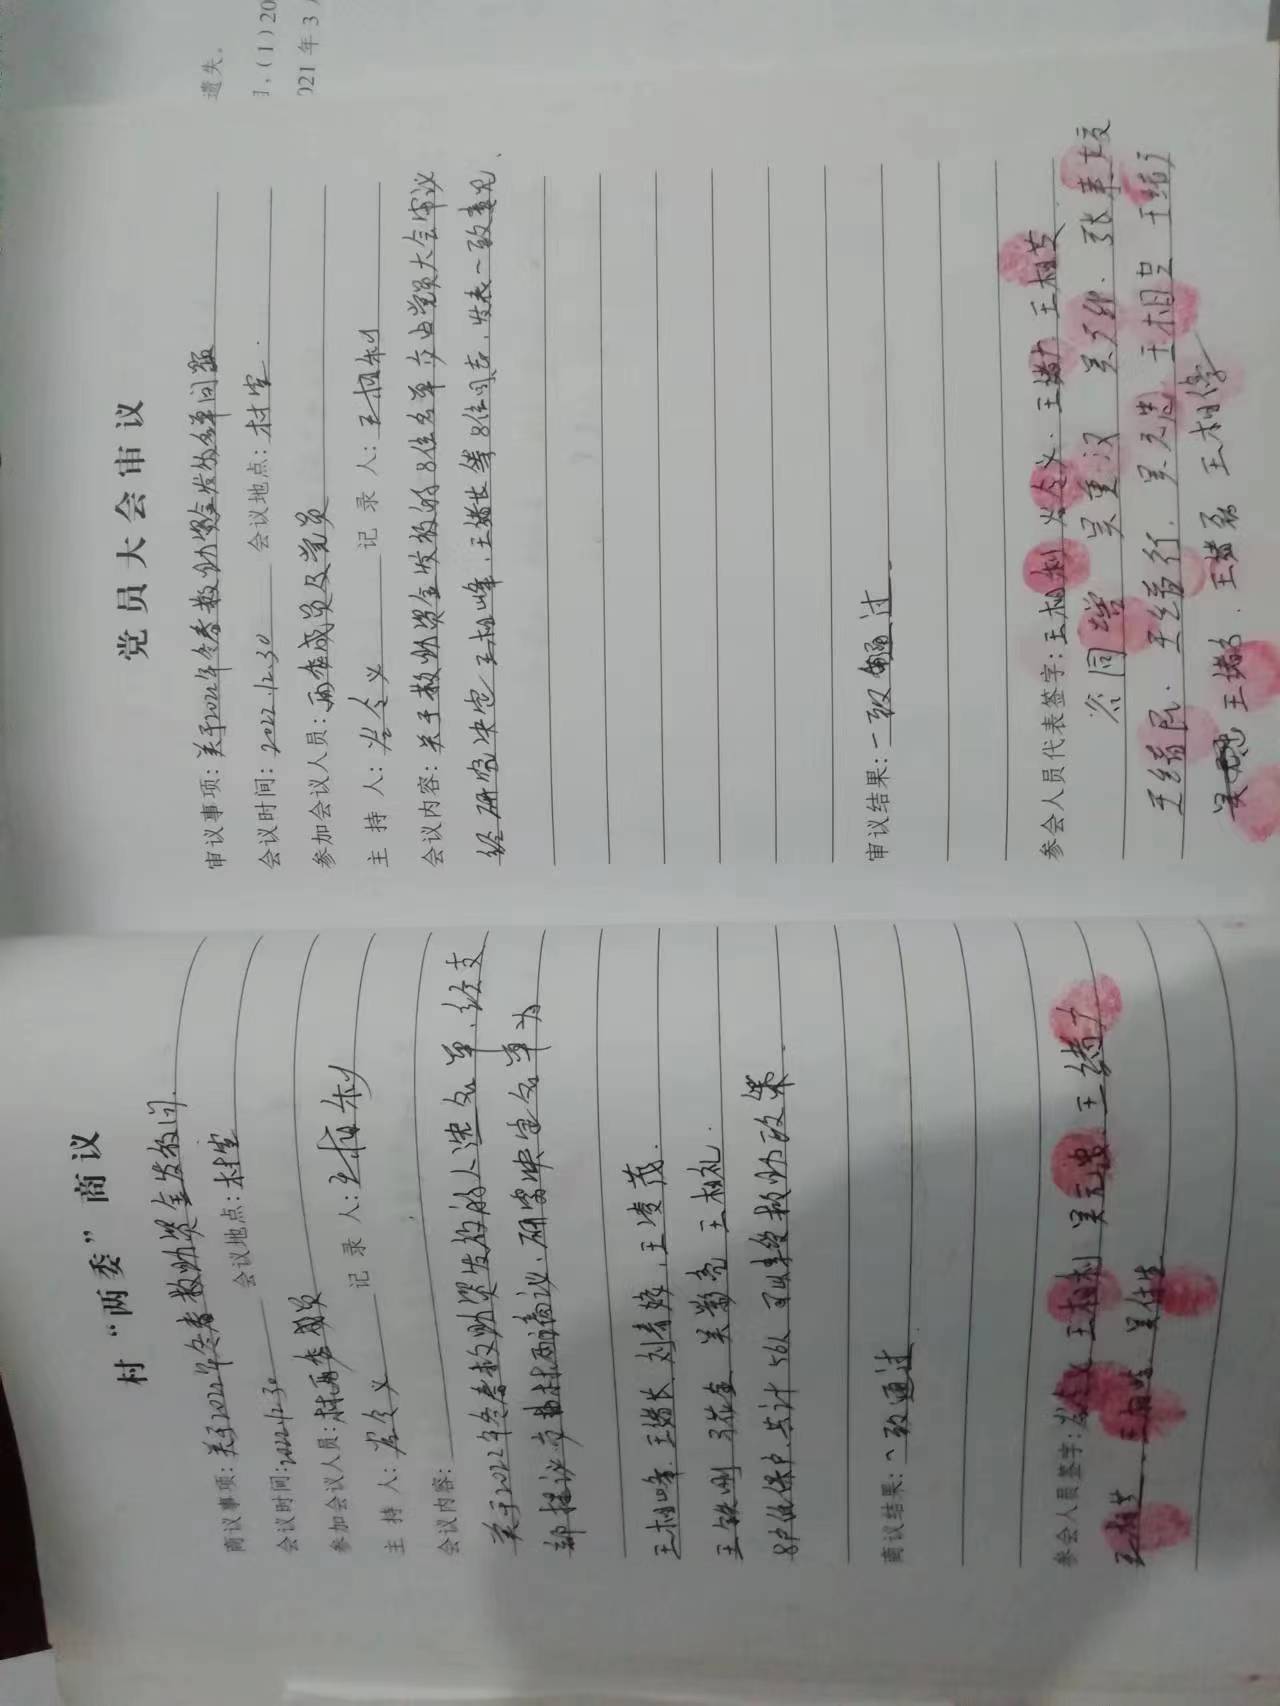 村“两委”商议
商议事项：关于2022年冬春救助资金发放问
会议时间：2022.12.30 会议地点：村室
参加会议人员：村两委成员
主持人：谷令义 记录人：王相利
会议内容：
关于2022年冬春救助资发放的人选名单，经支
部提议交由村两商议，研究决定名单为
王相峰、王绪长、刘青婷，王凌茂.
王铁刚 张花金 吴影亮 王相礼.
8户低保户共计56人可以享受救助政策.
商议结果：一致通过
参会人员签字：谷令义 王相利 吴元忠 王绪力
王相芝. 王相峰 吴任生
遗失。
(1)20
021年3
党员大会审议
审议事项：关于2022年冬春救助资金发放名单问题
会议时间：2022.12.30 会议地点：村室.
参加会议人员：两委成员及党员
主持人：谷令义 记录人：王相利
会议内容：关于救助资金发放的8位名单交由党员大会审议
经研究决定王相峰，王绪长等8位同志，发表一致意见、
审议结果：一致通过
参会人员代表签字：王相利 谷令义. 王绪力 王相芝
谷同培 吴重汉 张
王绪民. 吴元忠 王相 王绪
王绪 . 王绪磊 王相